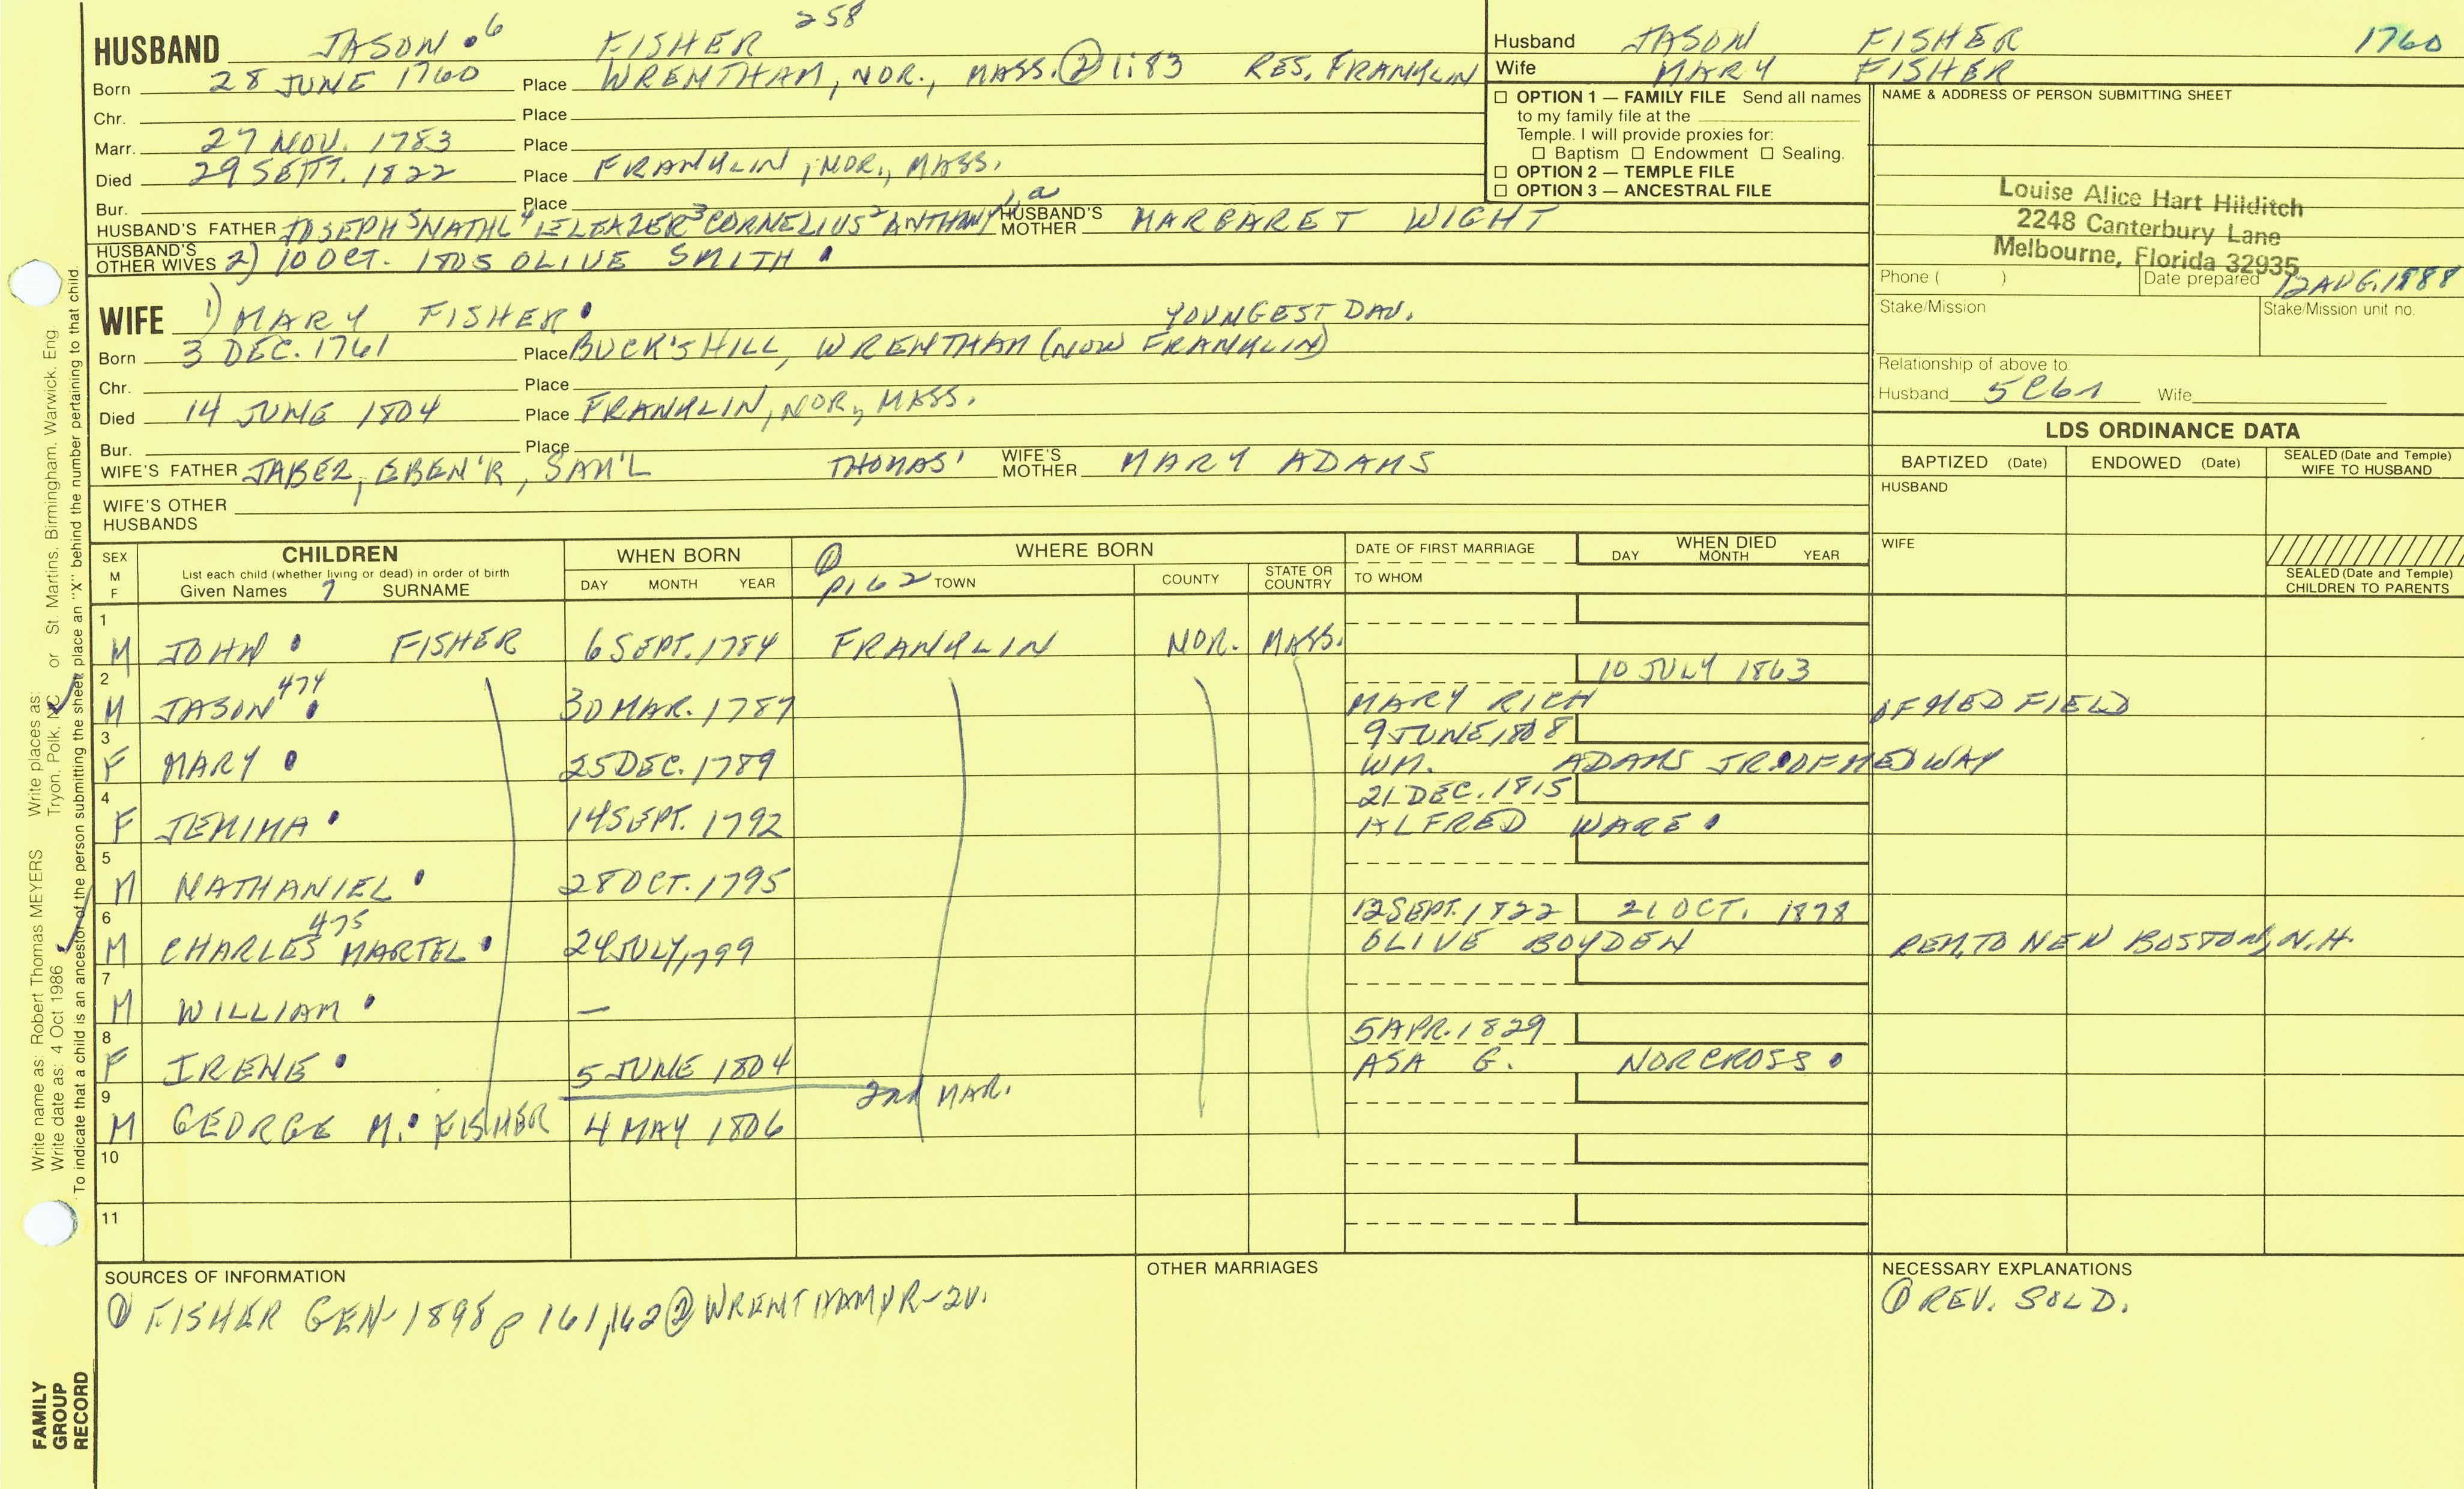 258
HUSBAND JASON 6 FISHER
Born 28 JUNE 1760 Place WRENTHAM, NOR., MASS. ② 1:83 RES. FRANKLIN
Chr. Place
Marr. 27 NOV. 1783 Place
Died 29 SEPT. 1822 Place FRANKLIN, NOR., MASS.
Bur. Place
HUSBAND'S FATHER JOSEPH 5 NATHL 4 ELEAZER 3 CORNELIUS 2 ANTHONY 1, a HUSBAND'S MOTHER MARGARET WIGHT
HUSBAND'S OTHER WIVES 2) 10 OCT. 1805 OLIVE SMITH
WIFE 1) MARY FISHER YOUNGEST DAU.
Born 3 DEC. 1761 Place BUCK'S HILL, WRENTHAM (NOW FRANKLIN)
Chr. Place
Died 14 JUNE 1804 Place FRANKLIN, NOR., MASS.
Bur. Place
WIFE'S FATHER JABEZ, EBEN'R, SAM'L THOMAS' WIFE'S MOTHER MARY ADAMS
WIFE'S OTHER HUSBANDS
Husband JASON FISHER 1760
Wife MARY FISHER
☐ OPTION 1 — FAMILY FILE Send all names
to my family file at the
Temple. I will provide proxies for:
☐ Baptism ☐ Endowment ☐ Sealing.
☐ OPTION 2 — TEMPLE FILE
☐ OPTION 3 — ANCESTRAL FILE
NAME & ADDRESS OF PERSON SUBMITTING SHEET
Louise Alice Hart Hilditch
2248 Canterbury Lane
Melbourne, Florida 32935
Phone ( ) Date prepared 12 AUG. 1988
Stake/Mission Stake/Mission unit no.
Relationship of above to
Husband 5C6R Wife
LDS ORDINANCE DATA
BAPTIZED (Date) ENDOWED (Date) SEALED (Date and Temple) WIFE TO HUSBAND
HUSBAND
WIFE
SEALED (Date and Temple) CHILDREN TO PARENTS
SEX M F
CHILDREN
List each child (whether living or dead) in order of birth
Given Names 7 SURNAME
WHEN BORN
DAY MONTH YEAR
① p162
WHERE BORN
TOWN COUNTY STATE OR COUNTRY
DATE OF FIRST MARRIAGE
TO WHOM
WHEN DIED
DAY MONTH YEAR
1
M JOHN FISHER 6 SEPT. 1784 FRANKLIN NOR. MASS.
2 10 JULY 1863
474
M JASON 30 MAR. 1787 MARY RICH OF MEDFIELD
3 9 JUNE, 1808
F MARY 25 DEC. 1789 WM. ADAMS JR. OF MEDWAY
4 21 DEC. 1815
F JEMIMA 14 SEPT. 1792 ALFRED WARE
5
M NATHANIEL 28 OCT. 1795
6 12 SEPT. 1822 21 OCT. 1878
475
M CHARLES MARTEL 24 JULY, 1799 OLIVE BOYDEN REM. TO NEW BOSTON, N.H.
7
M WILLIAM —
8 5 APR. 1829
F IRENE 5 JUNE 1804 ASA G. NORCROSS
9 2nd MAR.
M GEORGE M. FISHER 4 MAY 1806
10
11
SOURCES OF INFORMATION
① FISHER GEN-1898 p 161,162 ② WRENTHAM VR-2V.
OTHER MARRIAGES
NECESSARY EXPLANATIONS
① REV. SOLD.
Write name as: Robert Thomas MEYERS Write places as:
Write date as: 4 Oct 1986 Tryon, Polk, NC or St. Martins, Birmingham, Warwick, Eng.
To indicate that a child is an ancestor of the person submitting the sheet, place an "X" behind the number pertaining to that child.
FAMILY
GROUP
RECORD